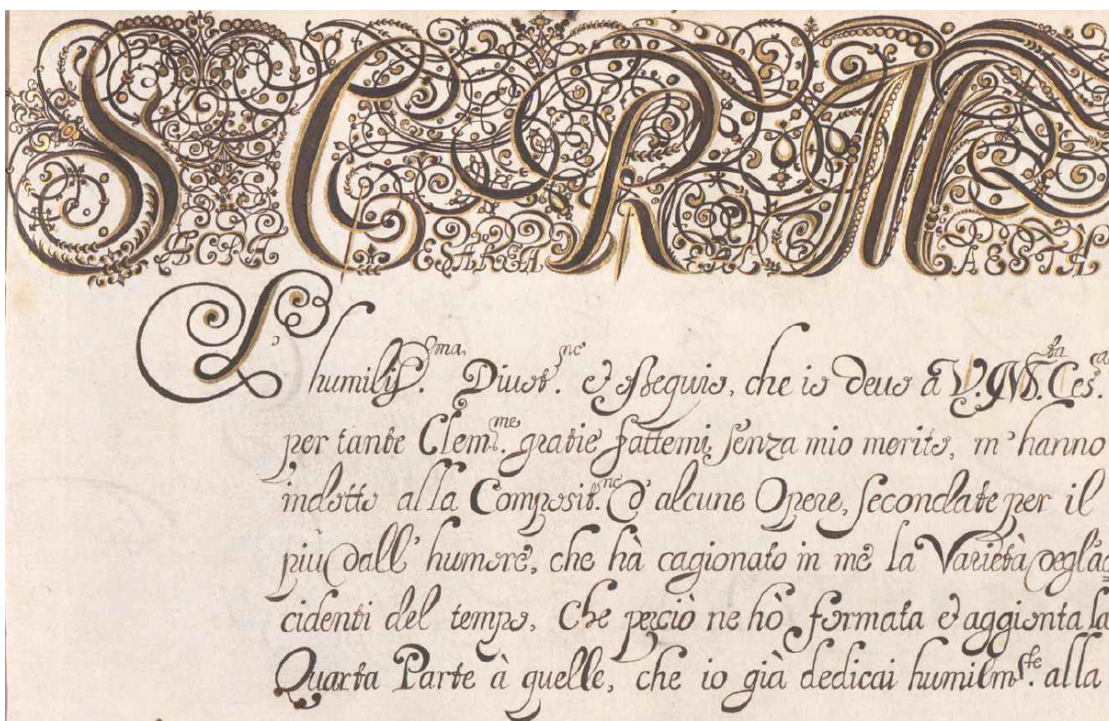 SACRA CESAREA REAL MAESTA
L' humiliss.ma Divot.ne et osseguio, che io devo a V.M.ta Ces.a
per tante Clem.me gratie fattemi, senza mio merito, m'hanno
indotto alla Composit.ne d'alcune Opere, secondate per il
più dall' humore, che hà cagionato in me la Varietà degl'ac=
cidenti del tempo, Che perciò ne hò formata et aggionta la
Quarta Parte à quelle, che io già dedicai humilm.te alla